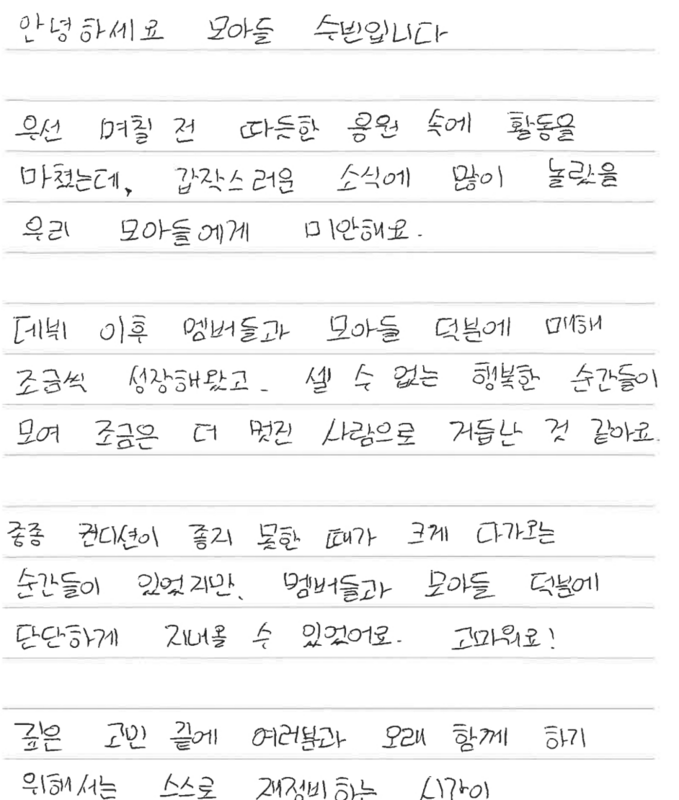 안녕하세요 모아들 수빈입니다
우선 며칠 전 따듯한 응원 속에 활동을
마쳤는데, 갑작스러운 소식에 많이 놀랐을
우리 모아들에게 미안해요.
데뷔 이후 멤버들과 모아들 덕분에 매해
조금씩 성장해왔고. 셀 수 없는 행복한 순간들이
모여 조금은 더 멋진 사람으로 거듭난 것 같아요.
종종 컨디션이 좋지 못한 때가 크게 다가오는
순간들이 있었지만, 멤버들과 모아들 덕분에
단단하게 지내올 수 있었어요. 고마워요!
깊은 고민 끝에 여러분과 오래 함께 하기
위해서는 스스로 재정비하는 시간이